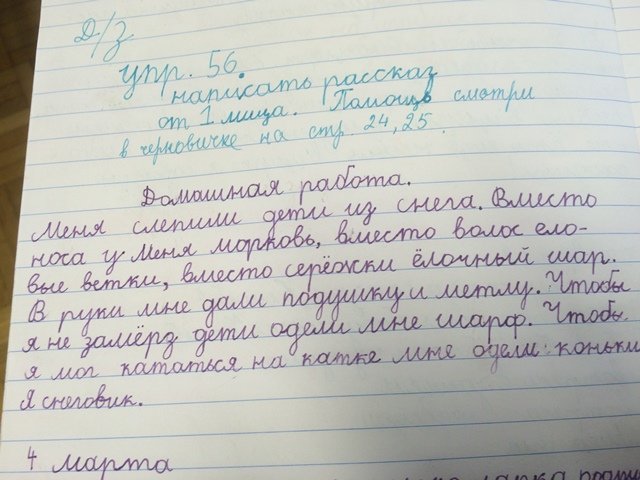 Д/З
упр. 56.
написать рассказ
от 1 лица. Помощь смотри
в черновичке на стр. 24, 25.
Домашная работа.
Меня слепили дети из снега. Вместо
носа у меня морковь, вместо волос ело-
вые ветки, вместо серёжки ёлочный шар.
В руки мне дали подушку и метлу. Чтобы
я не замёрз дети одели мне шарф. Чтобы
я мог кататься на катке мне одели коньки
Я снеговик.
4 марта